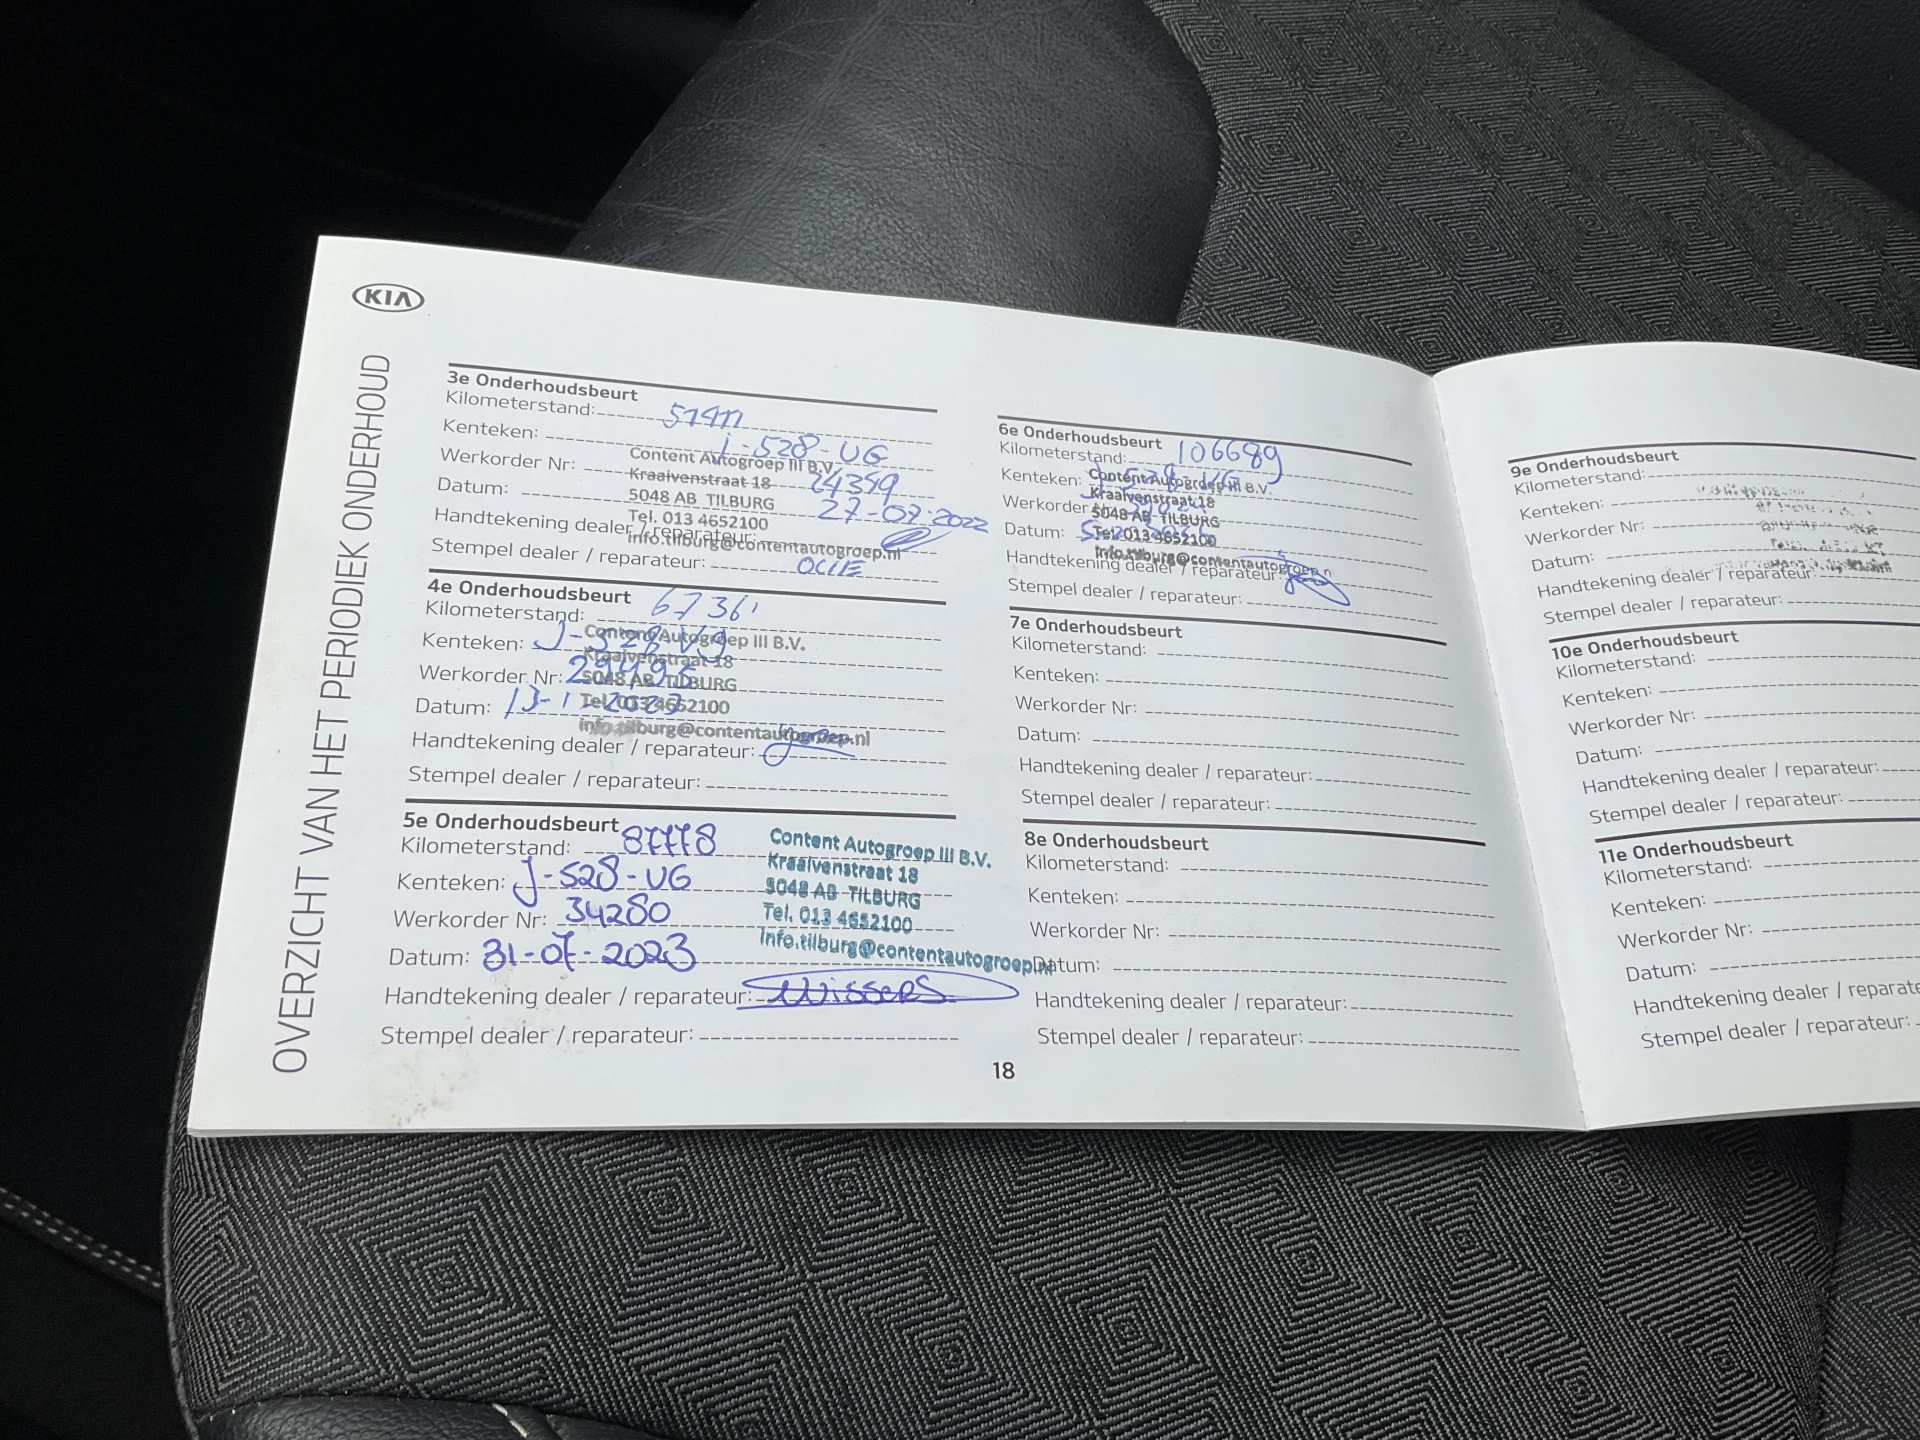 KIA
OVERZICHT VAN HET PERIODIEK ONDERHOUD
3e Onderhoudsbeurt
Kilometerstand:
Kenteken: J-528-UG
Werkorder Nr: 24399
Datum: 27-07-2022
Handtekening dealer / reparateur:
Stempel dealer / reparateur: OLIE
Content Autogroep III B.V.
Kraaivenstraat 18
5048 AB TILBURG
Tel. 013 4652100
info.tilburg@contentautogroep.nl
4e Onderhoudsbeurt
Kilometerstand:
Kenteken:
Werkorder Nr: 29495
Datum: 13-1-2023
Handtekening dealer / reparateur:
Stempel dealer / reparateur:
Content Autogroep III B.V.
Kraaivenstraat 18
5048 AB TILBURG
Tel. 013 4652100
info.tilburg@contentautogroep.nl
5e Onderhoudsbeurt
Kilometerstand: 87778
Kenteken: J-528-UG
Werkorder Nr: 34280
Datum: 31-07-2023
Handtekening dealer / reparateur: Wissers
Stempel dealer / reparateur:
Content Autogroep III B.V.
Kraaivenstraat 18
5048 AB TILBURG
Tel. 013 4652100
info.tilburg@contentautogroep.nl
6e Onderhoudsbeurt
Kilometerstand: 106689
Kenteken:
Werkorder
Datum:
Handtekening dealer / reparateur:
Stempel dealer / reparateur:
Content Autogroep III B.V.
Kraaivenstraat 18
5048 AB TILBURG
Tel. 013 4652100
info.tilburg@contentautogroep.n
7e Onderhoudsbeurt
Kilometerstand:
Kenteken:
Werkorder Nr:
Datum:
Handtekening dealer / reparateur:
Stempel dealer / reparateur:
8e Onderhoudsbeurt
Kilometerstand:
Kenteken:
Werkorder Nr:
Datum:
Handtekening dealer / reparateur:
Stempel dealer / reparateur:
18
9e Onderhoudsbeurt
Kilometerstand:
Kenteken:
Werkorder Nr:
Datum:
Handtekening dealer / reparateur:
Stempel dealer / reparateur:
10e Onderhoudsbeurt
Kilometerstand:
Kenteken:
Werkorder Nr:
Datum:
Handtekening dealer / reparateur:
Stempel dealer / reparateur:
11e Onderhoudsbeurt
Kilometerstand:
Kenteken:
Werkorder Nr:
Datum:
Handtekening dealer / reparate
Stempel dealer / reparateur: